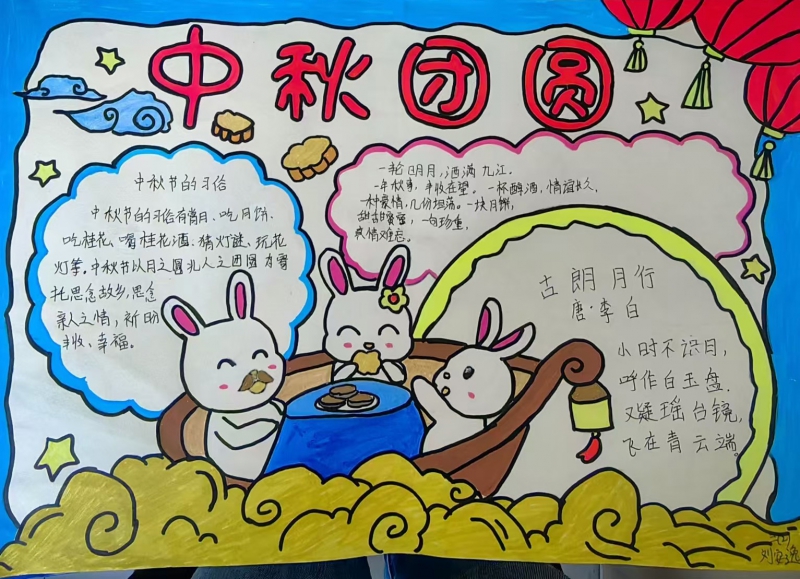 中秋团圆
中秋节的习俗
中秋节的习俗有赏月、吃月饼、
吃桂花、喝桂花酒、猜灯谜、玩花
灯等。中秋节以月之圆兆人之团圆为寄
托思念故乡,思念
亲人之情，祈盼
丰收、幸福。
一轮明月,洒满九江.
一年秋事，丰收在望。一杯醇酒，情谊长久,
一种豪情,几份坦荡。一块月饼,
甜甜蜜蜜，一句珍重,
真情难忘。
古朗月行
唐·李白
小时不识月,
呼作白玉盘.
又疑瑶台镜,
飞在青云端。
刘